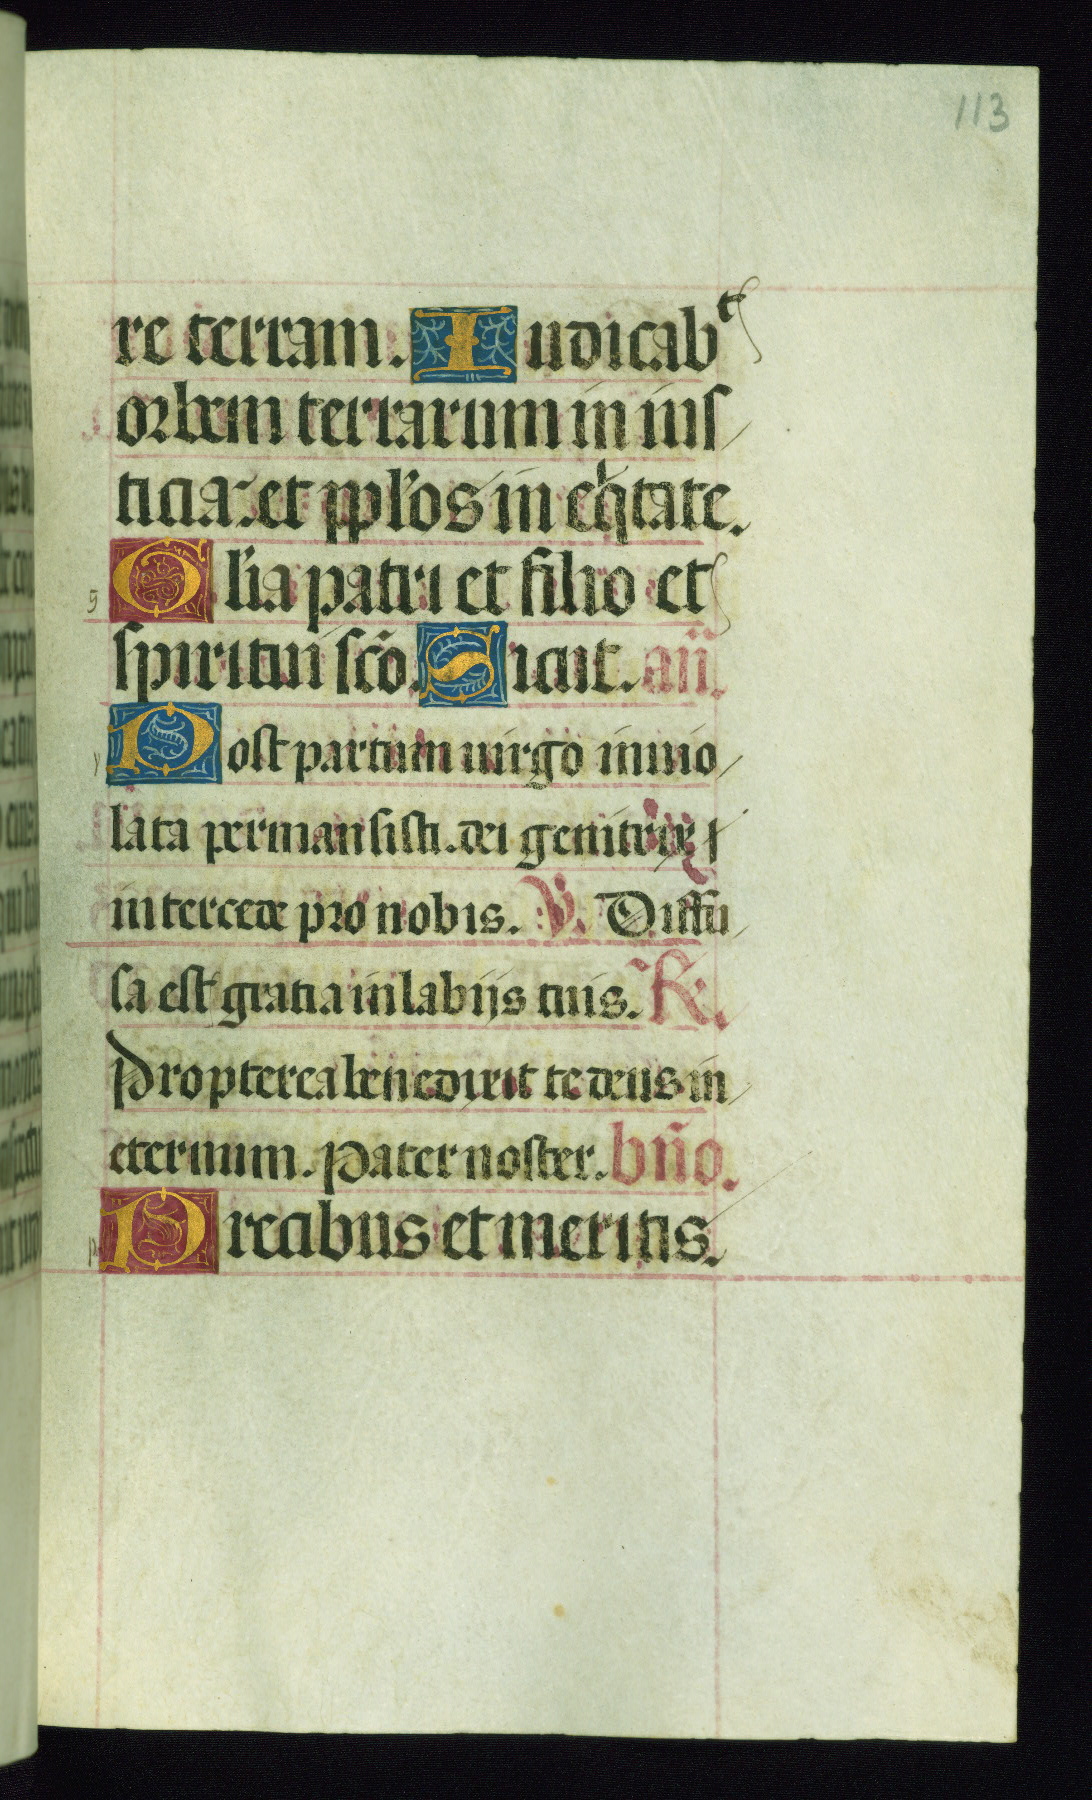 113
re terram. Iudicabᵗ
orbem terrarum in ius/
ticia. et pplos in eqtate.
Glia patri et filio et
spiritui scō. Sicut. añ.
Post partum uirgo inuio/
lata permansisti. dei genitrix
intercede pro nobis. V. Diffu/
sa est gratia in labijs tuis. R.
Propterea benedixit te deus in/
eternum. Pater noster. bño.
Precibus et meritis.